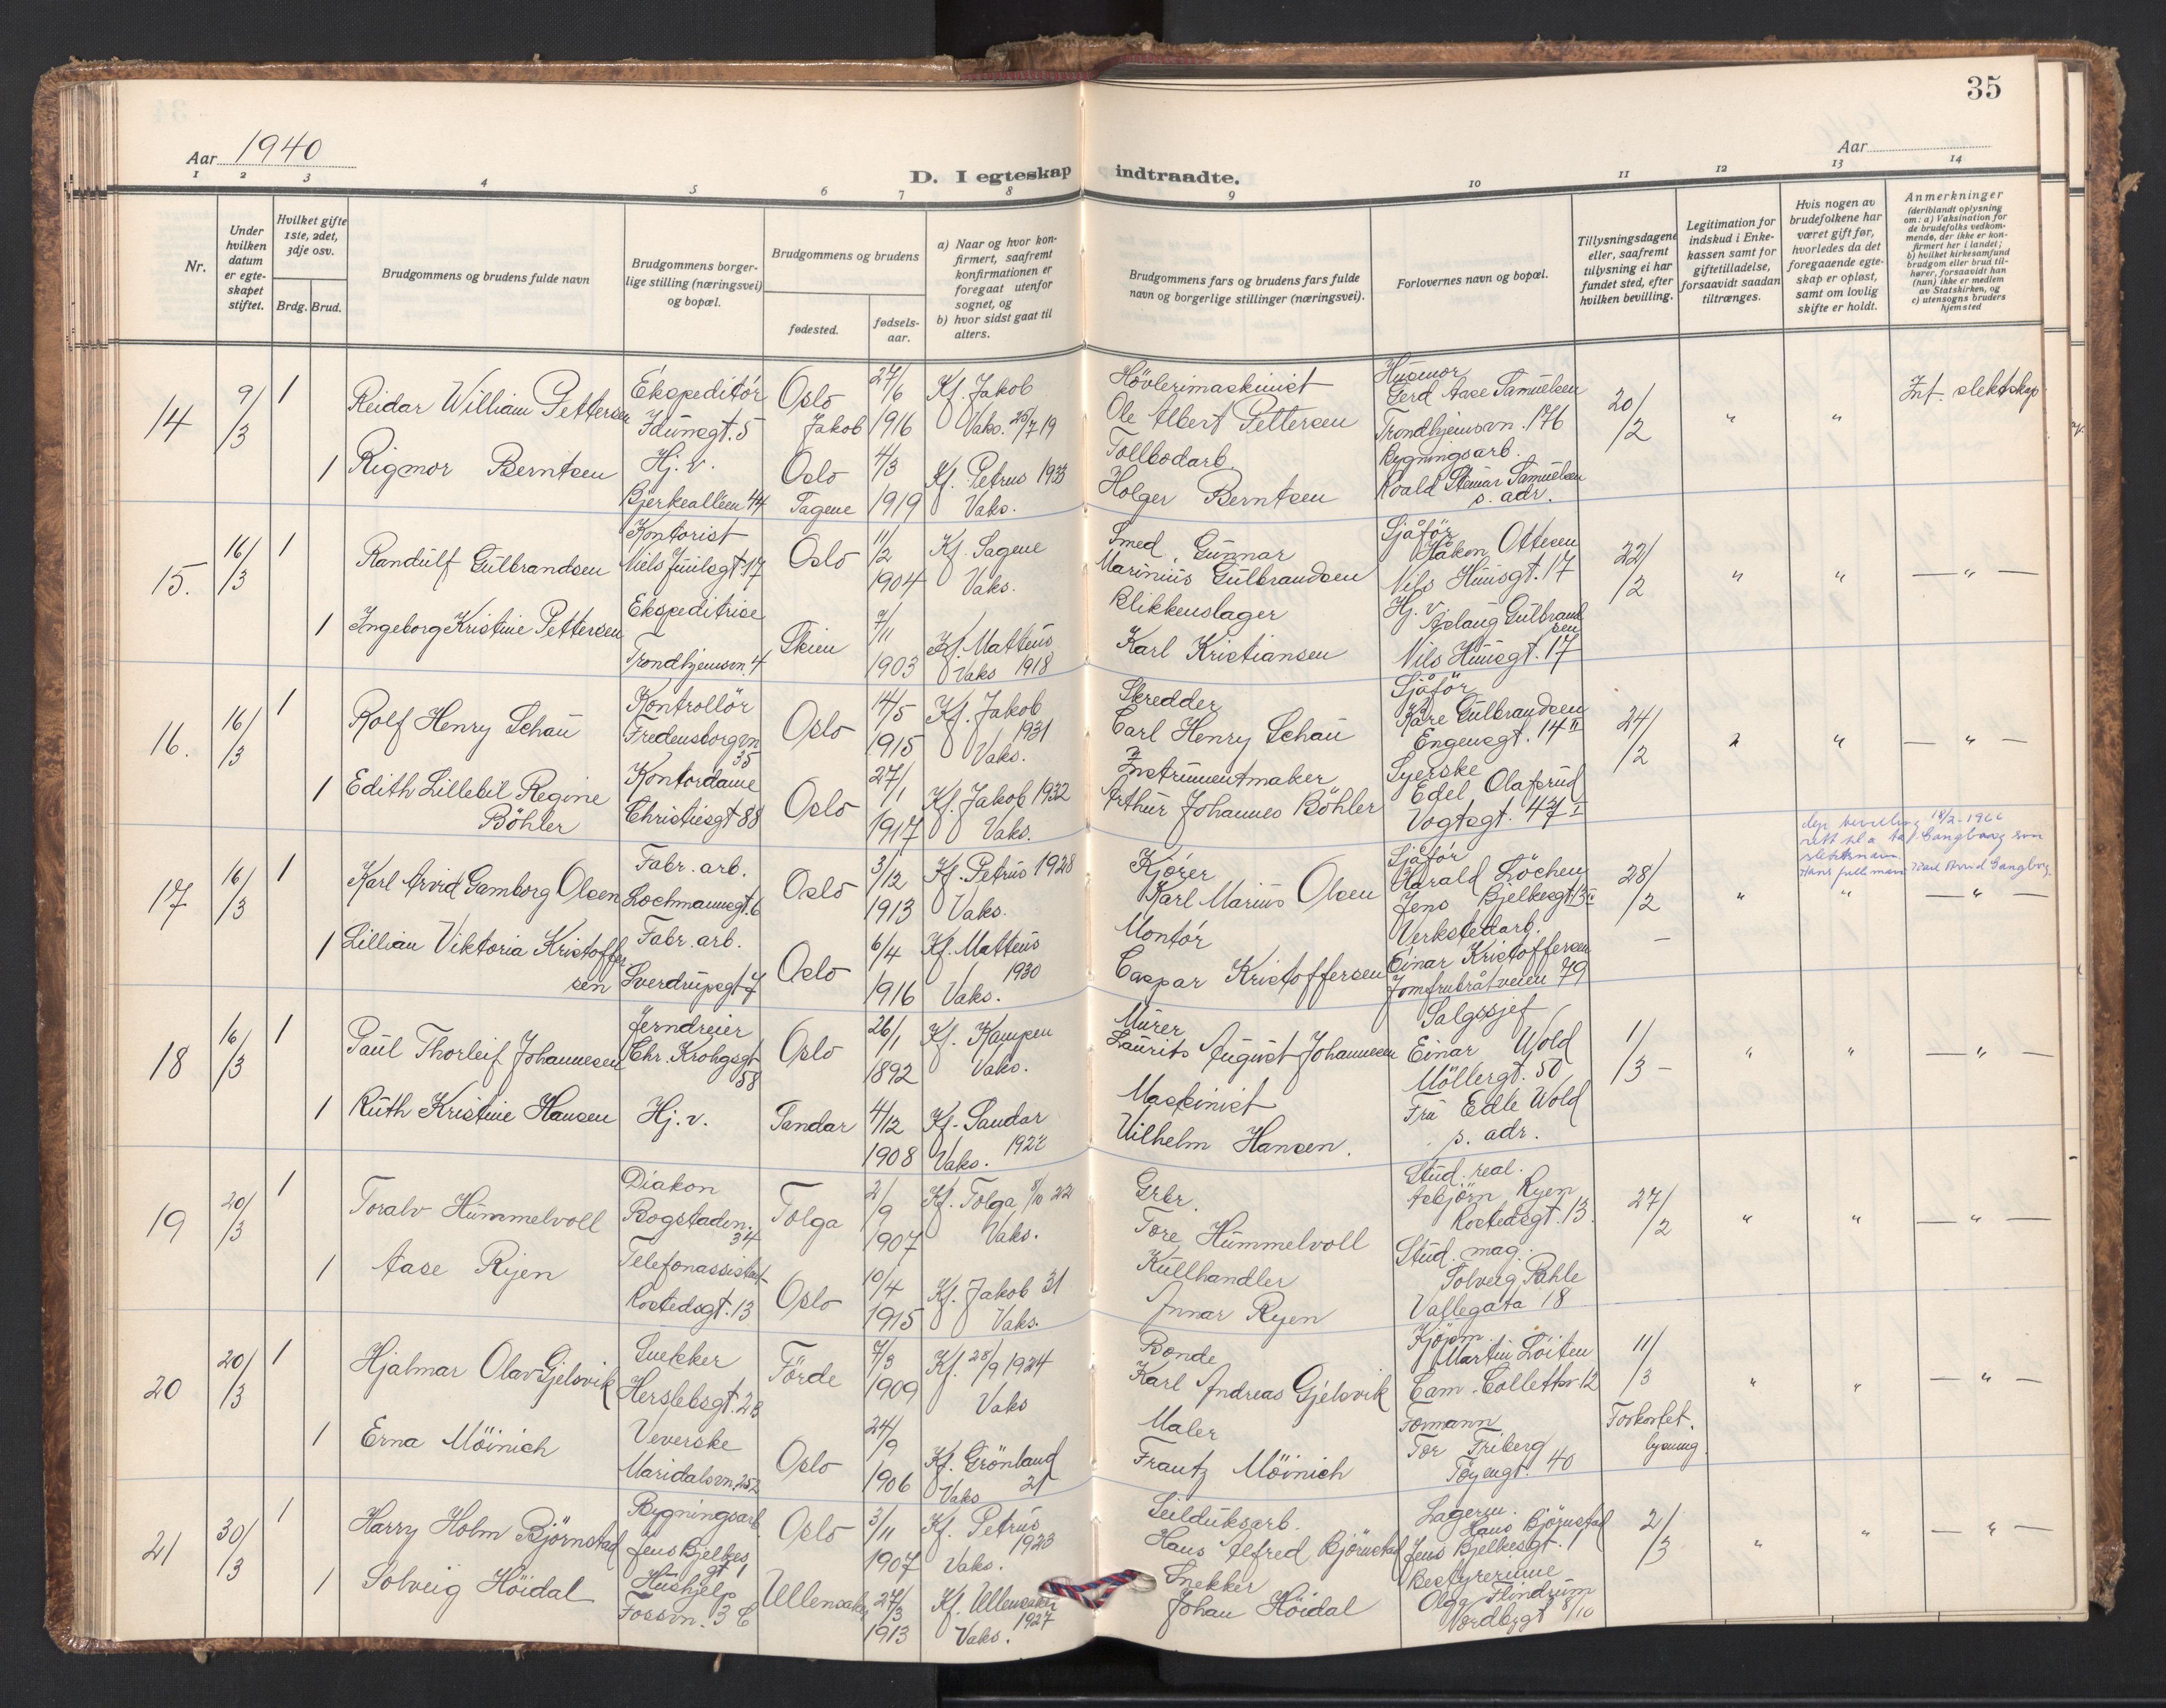 35
Aar 1940
Aar
D. I egteskap indtraadte.
1 2 3 4 5 6 7 8 9 10 11 12 13 14
Nr.
Under hvilken datum er egteskapet stiftet.
Hvilket gifte 1ste, 2det, 3dje osv.
Brdg. Brud.
Brudgommens og brudens fulde navn
Brudgommens borgerlige stilling (næringsvei) og bopæl.
Brudgommens og brudens
fødested.
fødselsaar.
a) Naar og hvor konfirmert, saafremt konfirmationen er foregaat utenfor sognet, og
b) hvor sidst gaat til alters.
Brudgommens fars og brudens fars fulde navn og borgerlige stillinger (næringsvei).
Forlovernes navn og bopæl.
Tillysningsdagene eller, saafremt tillysning ei har fundet sted, efter hvilken bevilling.
Legitimation for indskud i Enkekassen samt for giftetilladelse, forsaavidt saadan tiltrænges.
Hvis nogen av brudefolkene har været gift før, hvorledes da det foregaaende egteskap er opløst, samt om lovlig skifte er holdt.
Anmerkninger
(deriblandt oplysning om: a) Vaksination for de brudefolks vedkommende, der ikke er konfirmert her i landet; b) hvilket kirkesamfund brudgom eller brud tilhører, forsaavidt han (hun) ikke er medlem av Statskirken, og c) utensogns bruders hjemsted
14 9/3 1 Reidar William Pettersen Ekspeditør Idunsgt. 5 Oslo Jakob 27/6 1916 Kf. Jakob Vaks. 25/7 19 Høvlerimaskinist Ole Albert Pettersen Husmor Gerd Aase Samuelsen Trondhjemsvn. 176 20/2 " " Int. slektskap
1 Rigmor Berntsen Hj. v. Bjerkealleen 44 Oslo Sagene 4/3 1919 Kf. Petrus 1933 Vaks. Tollbodarb. Holger Berntsen Bygningsarb. Roald Steinar Samuelsen s. adr.
15. 16/3 1 Randulf Gulbrandsen Kontorist Niels Juulsgt. 17 Oslo 11/2 1904 Kf. Sagene Vaks. Smed Gunnar Marinius Gulbrandsen Sjåför Håkon Ottesen Nils Huusgt. 17 22/2 " " — " —
1 Ingeborg Kristine Pettersen Ekspeditrise Trondhjemsvn. 4 Skien 7/11 1903 Kf. Matteus Vaks 1918 Blikkenslager Karl Kristiansen Hj. v. Aslaug Gulbrandsen Nils Huusgt. 17
16. 16/3 1 Rolf Henry Schau Kontrollör Fredensborgvn 35 Oslo 14/5 1915 Kf. Jakob 1931 Vaks. Skredder Carl Henry Schau Sjåför Kåre Gulbrandsen Engensgt. 14 II 24/2 " " — " —
1 Edith Lillebil Regine Böhler Kontordame Christiesgt 88 Oslo 27/1 1917 Kf. Jakob 1932 Vaks. Instrumentmaker Arthur Johannes Böhler Syerske Edel Olafsrud Vogtsgt. 47 I
17 16/3 1 Karl Arvid Gamborg Olsen Fabr. arb. Lochmannsgt. 6 Oslo 3/12 1913 Kf. Petrus 1928 Vaks. Kjører Karl Marius Olsen Sjåför Harald Löchen Jens Bjelkesgt. 28/2 " " — " —
1 Lillian Viktoria Kristoffersen Fabr. arb. Sverdrupsgt. 7 Oslo 6/4 1916 Kf. Matteus 1930 Vaks. Montör Caspar Kristoffersen Verkstedarb. Einar Kristoffersen Jomfrubråtveien 79 —
18 16/3 1 Paul Thorleif Johannesen Jerndreier Chr. Krohgsgt 58 Oslo 26/1 1892 Kf. Kampen Vaks. Murer Laurits August Johannesen Salgssjef Einar Wold Möllergt. 50 1/3 — " " — " —
1 Ruth Kristine Hansen Hj. v. Sandar 4/12 1908 Kf. Sandar 1922 Vaks. Maskinist Vilhelm Hansen. Fru Edle Wold s. adr.
19 20/3 1 Toralv Hummelvoll Diakon Bogstadvn. 34 Tolga 2/9 1907 Kf. Tolga 8/10 22 Vaks. Grbr. Tore Hummelvoll Stud. real. Asbjörn Ryen Rostedsgt. 13. 27/2 " " — " —
1 Aase Ryen Telefonassistent Rostedsgt. 13 Oslo 10/4 1915 Kf. Jakob 31 Vaks. Kullhandler Annar Ryen Stud. mag. Solveig Pahle Vallegata 18
20 20/3 1 Hjalmar Olav Gjelsvik Snekker Herslebsgt. 23 Förde 7/3 1909 Kf. 28/9 1924 Vaks Bonde Karl Andreas Gjelsvik Kjöpm. Martin Löiten Cam. Collettsv. 12 11/3 " " — " —
1 Erna Möinich Veverske Maridalsvn. 252 Oslo 24/9 1906 Kf. Grönland Vaks 21 Maler Frantz Möinich Formann Tor Friberg Töyengt. 40 Forkortet lysning.
21 30/3 1 Harry Holm Björnstad Bygningsarb. Jens Bjelkesgt 1 Oslo 3/11 1907 Kf. Petrus 1923 Vaks. Seilduksarb. Hans Alfred Björnstad Lagerm. Hans Björnstad Jens Bjelkesgt. 1 2/3 " " — " —
1 Solveig Höidal Hushjelp Fossvn. 3 C Ullensaker 27/3 1913 Kf. Ullensaker 1927 Vaks. Snekker Johan Höidal Bestyrerinne Olga Flindrum Nordbygt 8/10